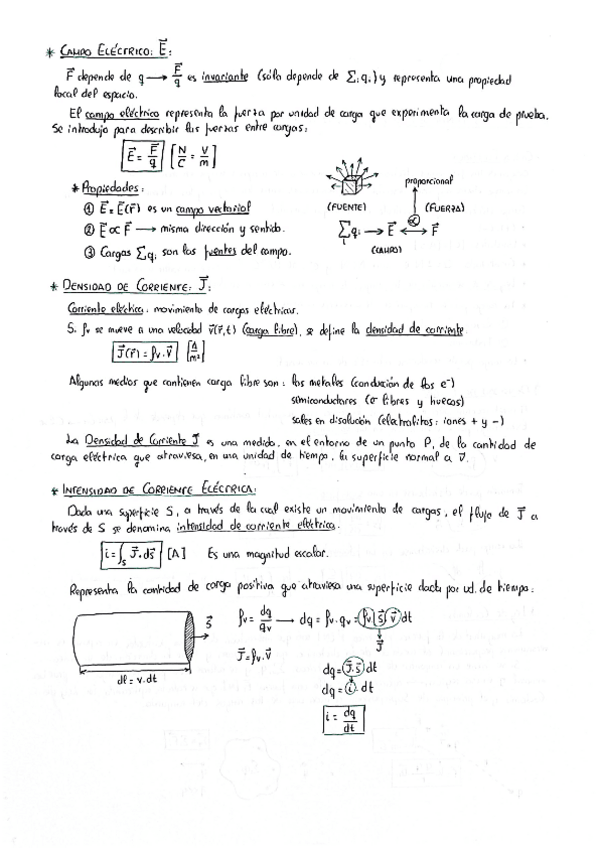 * CAMPO ELÉCTRICO: E⃗:
F⃗ depende de q → F⃗/q es invariante (sólo depende de Σqi) y representa una propiedad
local del espacio.
El campo eléctrico representa la fuerza por unidad de carga que experimenta la carga de prueba.
Se introdujo para describir las fuerzas entre cargas:
E⃗ = F⃗/q [N/C = V/m]
* Propiedades:
① E⃗ = E⃗(r⃗) es un campo vectorial
② E⃗ ∝ F⃗ → misma dirección y sentido.
③ Cargas Σqi son las fuentes del campo.
proporcional
(FUENTE) ∝ (FUERZA)
Σqi → E⃗ ↔ F⃗
(CAMPO)
* DENSIDAD DE CORRIENTE: J⃗:
Corriente eléctrica: movimiento de cargas eléctricas.
S. ρv se mueve a una velocidad v⃗(r⃗,t) (carga libre), se define la densidad de corriente
J⃗(r⃗) = ρv·v⃗ [A/m²]
Algunos medios que contienen carga libre son: los metales (conducion de los e⁻)
semiconductores (σ libres y huecos)
sales en disolución (electrolitos: iones + y -)
La Densidad de Corriente J⃗ es una medida, en el entorno de un punto P, de la cantidad de
carga eléctrica que atraviesa, en una unidad de tiempo, la superficie normal a v⃗.
* INTENSIDAD DE CORRIENTE ELÉCTRICA:
Dada una superficie S, a través de la cual existe un movimiento de cargas, el flujo de J⃗ a
través de S se denomina intensidad de corriente eléctrica.
i = ∫s J⃗·ds⃗ [A] Es una magnitud escalar.
Representa la cantidad de carga positiva que atraviesa una superficie dada por ud. de tiempo:
S⃗
dl = v·dt
ρv = dq/qv → dq = ρv·qv = ρv|S⃗|v⃗ dt
J⃗
J⃗ = ρv·v⃗
dq = J⃗·S⃗ dt
dq = i·dt
i = dq/dt